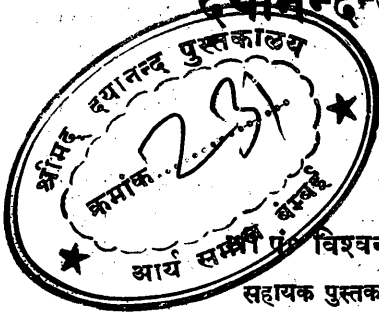 श्रीमद् दयानन्द पुस्तकालय
क्रमांक 231
आर्य समाज बम्बई
पं० विश्व
सहायक पुस्तक